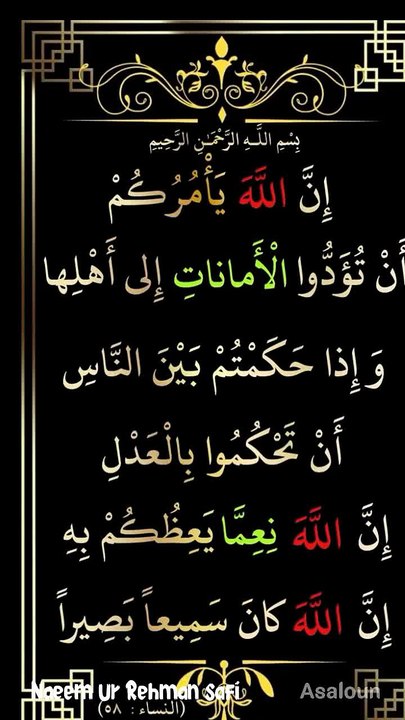 بِسْمِ اللَّـهِ الرَّحْمَـٰنِ الرَّحِيمِ
إِنَّ اللَّهَ يَأْمُرُكُمْ
أَنْ تُؤَدُّوا الْأَماناتِ إِلى أَهْلِها
وَ إِذا حَكَمْتُمْ بَيْنَ النَّاسِ
أَنْ تَحْكُمُوا بِالْعَدْلِ
إِنَّ اللَّهَ نِعِمَّا يَعِظُكُمْ بِهِ
إِنَّ اللَّهَ كانَ سَمِيعاً بَصِيراً
Naeem ur Rehman Safi
Asaloun
(النساء: ٥٨)